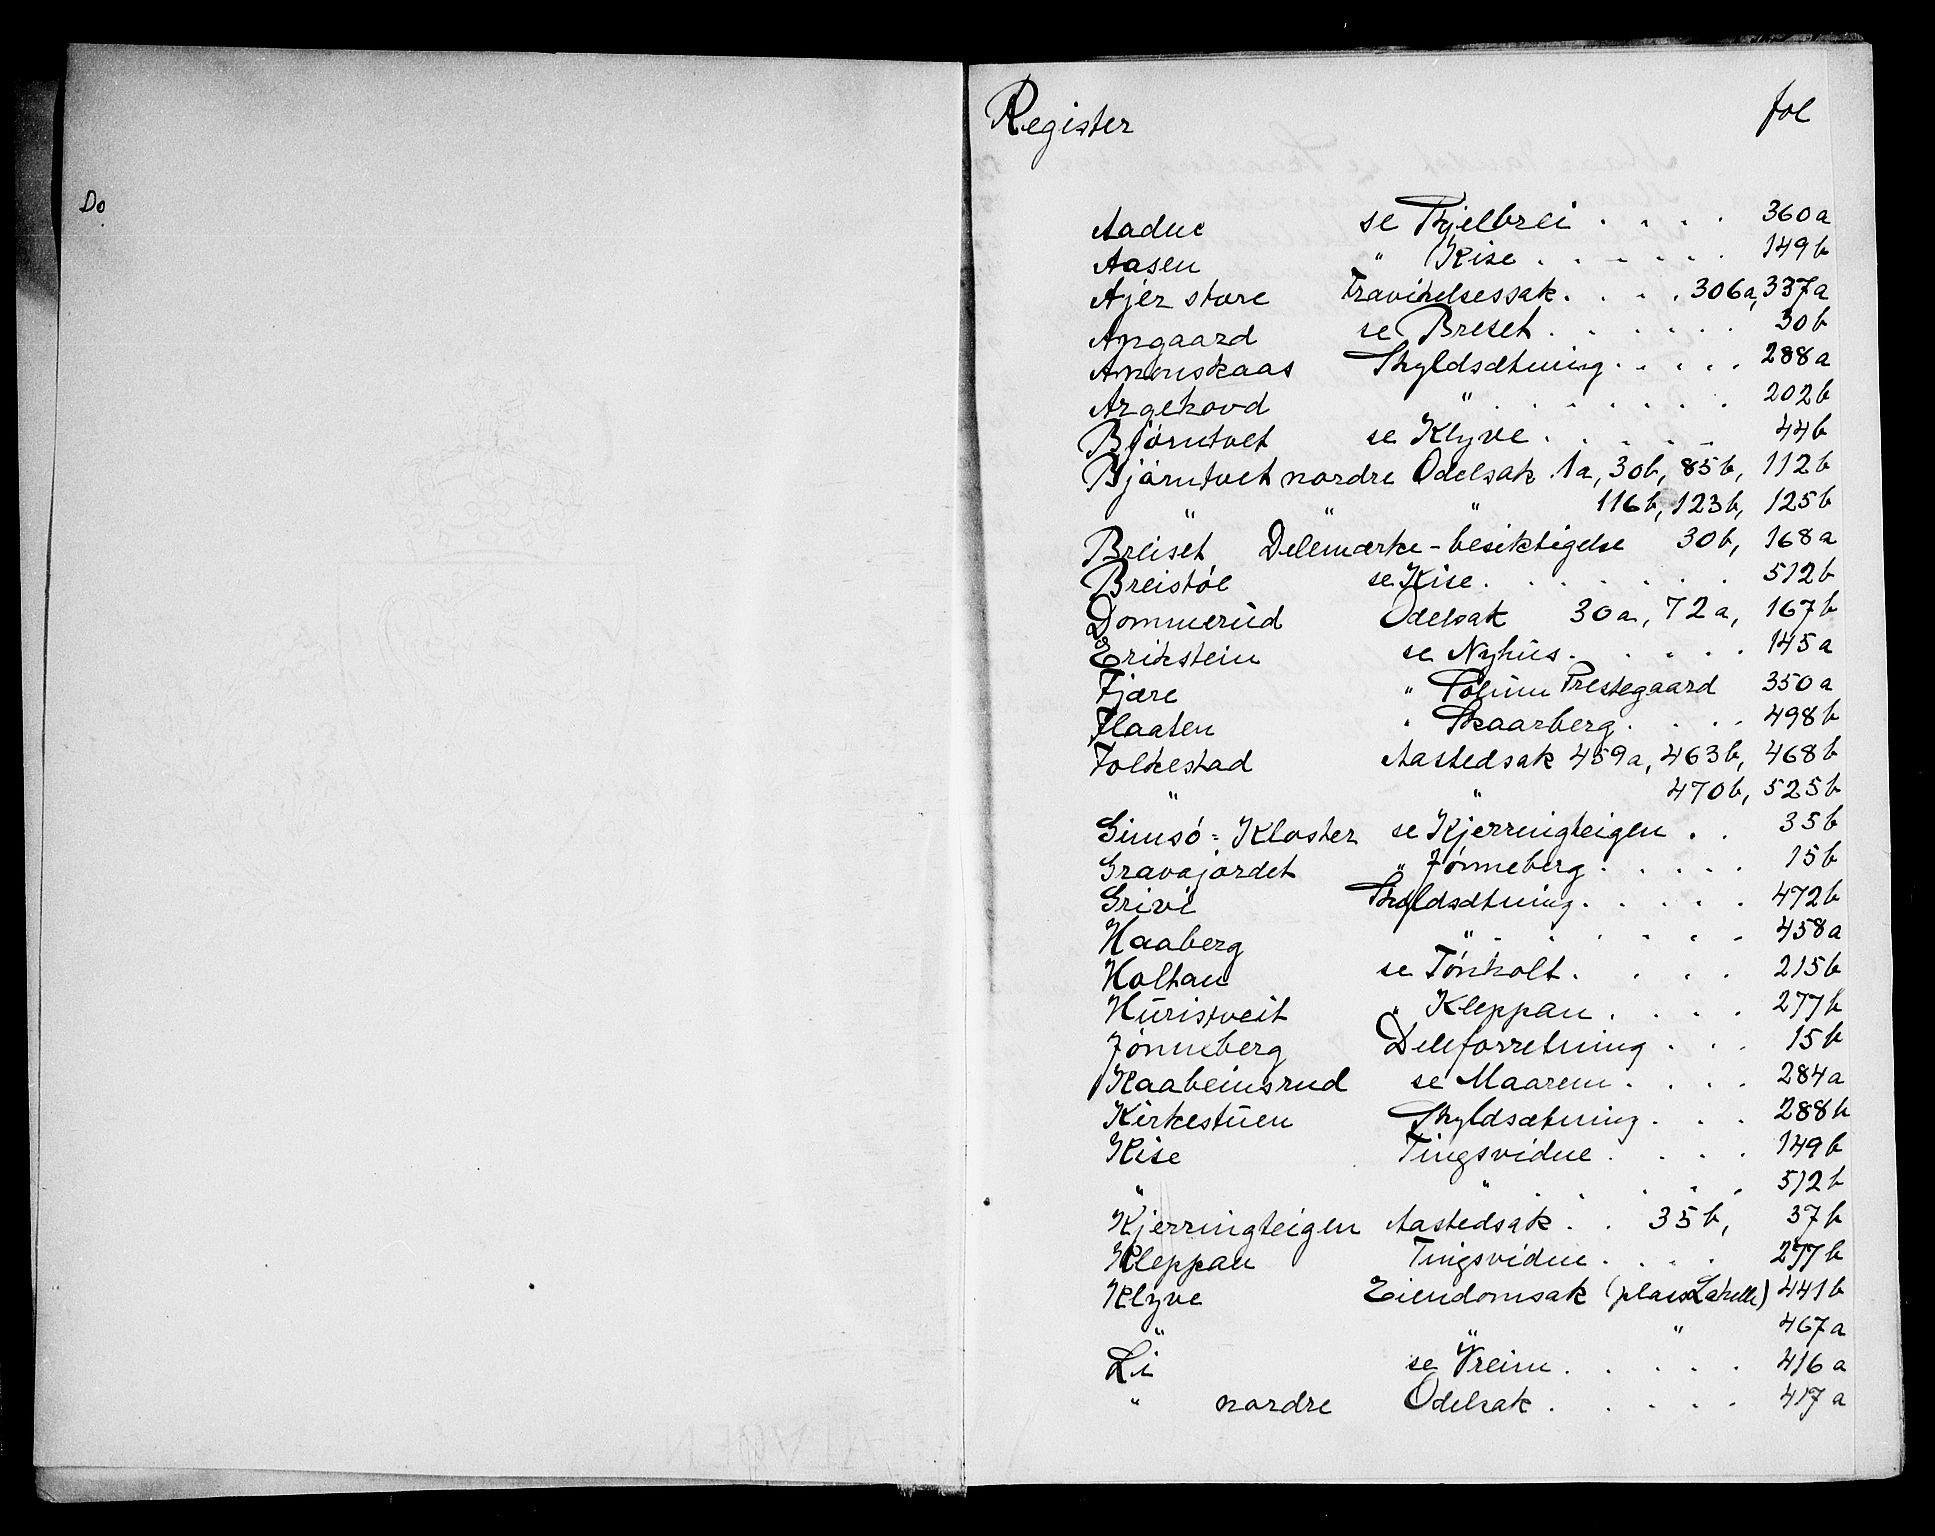 Do
Register fol
Aadne se Skjelbrei . . . . 360a
Aasen " Kise . . . . . . 149b
Ajer store Fravikelsessak . . . . 306a, 337a
Apgaard se Breset . . . . . . 30b
Amonskaas Skyldsætning . . . . . 288a
Argehovd " . . . . . . . . 202b
Bjørntvet se Klyve . . . . . . 44b
Bjørntvet nordre Odelsak 1a, 30b, 85b, 112b
" " " 116b, 123b, 125b
Breiset Delemærke-besiktigelse 30b, 168a
Breistøl se Kise . . . . . . . 512b
Dommerud Odelsak 30a, 72a, 167b
Erikstein se Nyhus . . . . . 145a
Fjære " Solum Prestegaard 350a
Flaaten " Skaarberg . . . . 498b
Folkestad Aastedsak 459a, 463b, 468b
" " 470b, 525b
Gimsø=Kloster se Kjerringteigen . . 35b
Gravajordet " Jønneberg . . . . . 15b
Grivi Skyldsætning . . . . . 472b
Haaberg " . . . . . . . 458a
Holtan se Tønholt . . . . 215b
Huristveit " Kleppan . . . . 277b
Jønneberg Deleforretning . . . 15b
Kaabeinsrud se Maarem . . . . 284a
Kirkestuen Skyldsætning . . . 288b
Kise Tingsvidne . . . . 149b
" " . . . . . 512b
Kjerringteigen Aastedsak . . 35b, 37b
Kleppan Tingsvidne . . . . 277b
Klyve Eiendomsak (plads Lakelle) 441b
" " " 467a
Li se Vreim . . . . . 416a
" nordre Odelsak . . . . . 417a